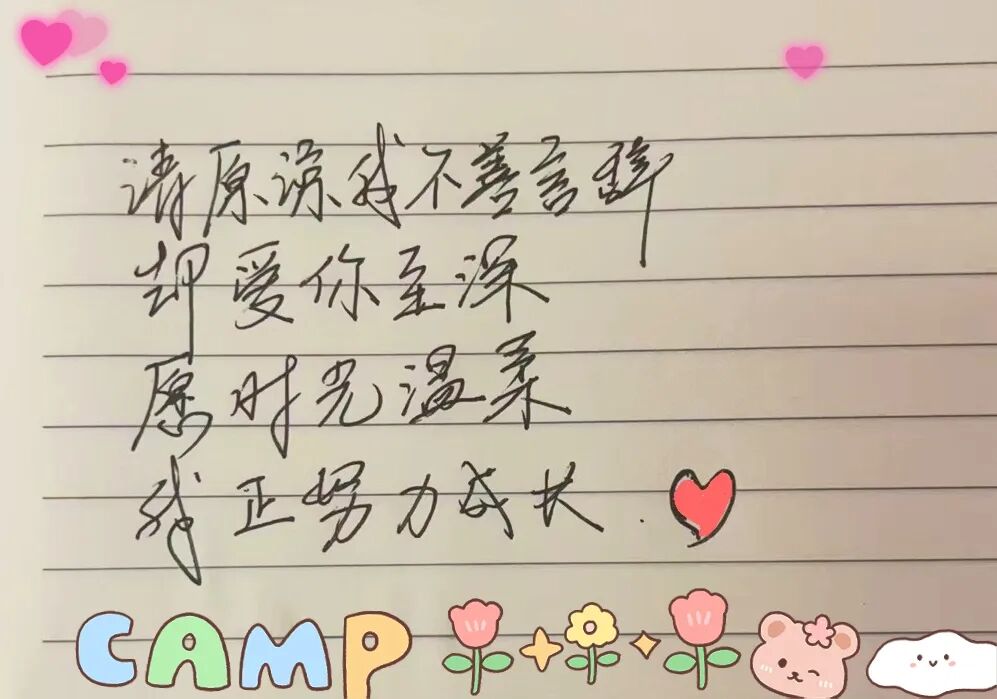 请原谅我不善言辞
却爱你至深
愿时光温柔
我正努力成长.
CAMP